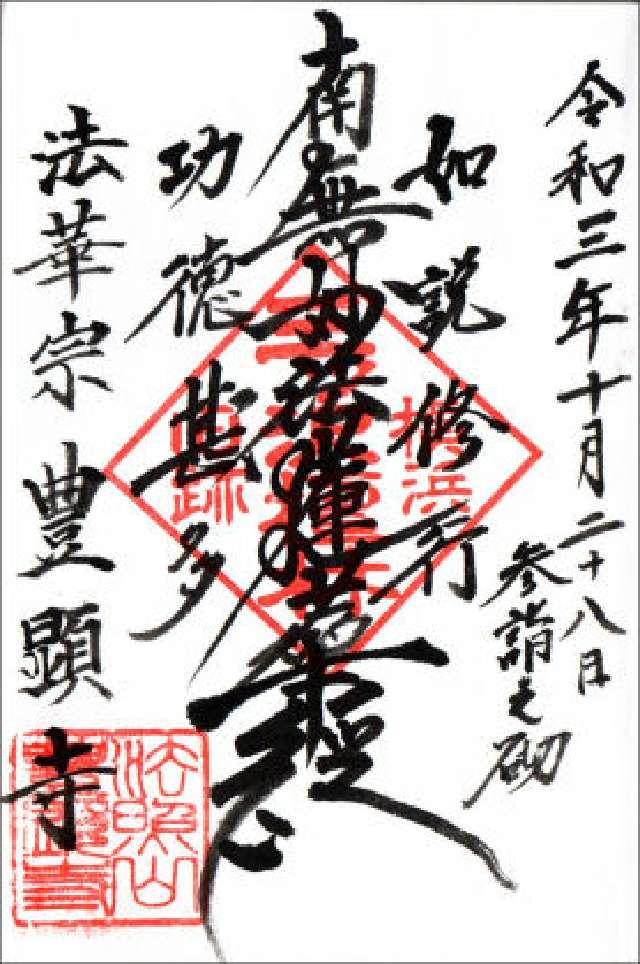 令和三年十月二十八日
参詣之砌
如説修行
南無妙法蓮華経
功德甚多
法華宗豊顕寺
横浜
法照山